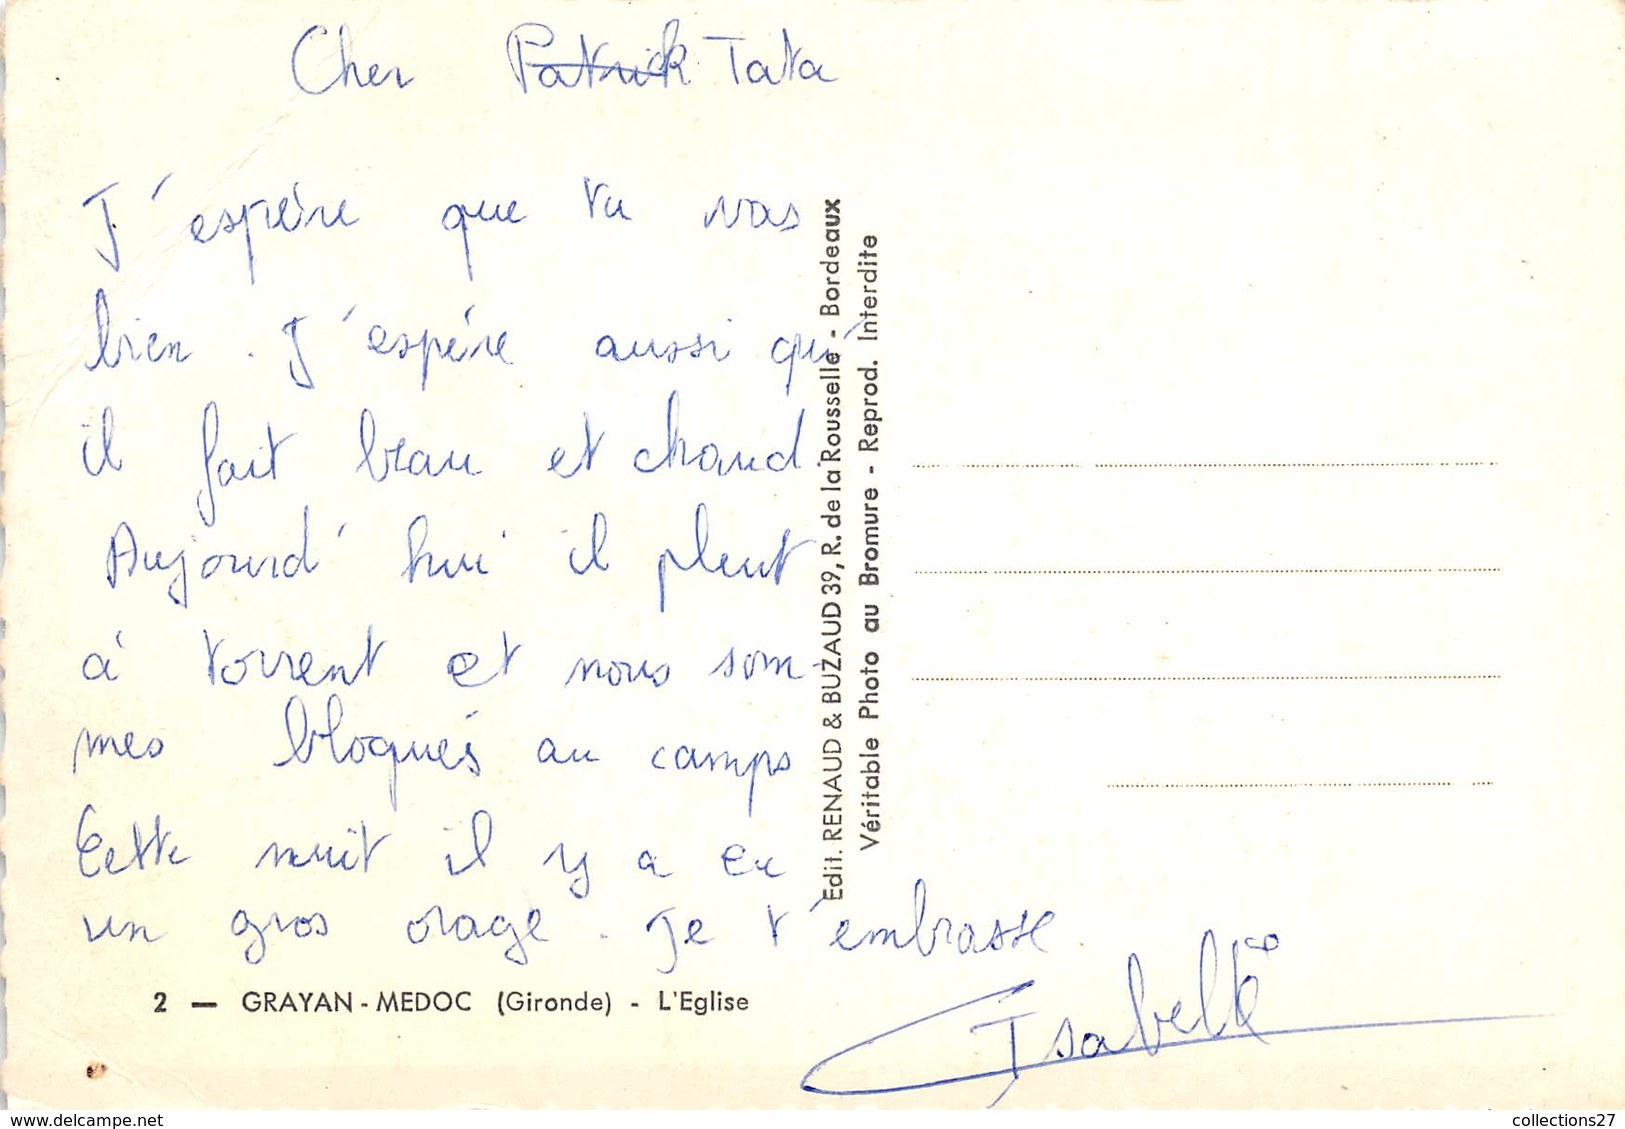 Cher Patrick Tata
J'espère que tu vas
bien. J'espère aussi qu'
il fait beau et chaud
Aujourd'hui il pleut
à torrent et nous som-
mes bloqués au camps
Cette nuit il y a eu
un gros orage. Je t'embrasse
Isabelle
2 — GRAYAN - MEDOC (Gironde) - L'Eglise
Edit. RENAUD & BUZAUD 39, R. de la Rousselle - Bordeaux
Véritable Photo au Bromure - Reprod. Interdite
collections27